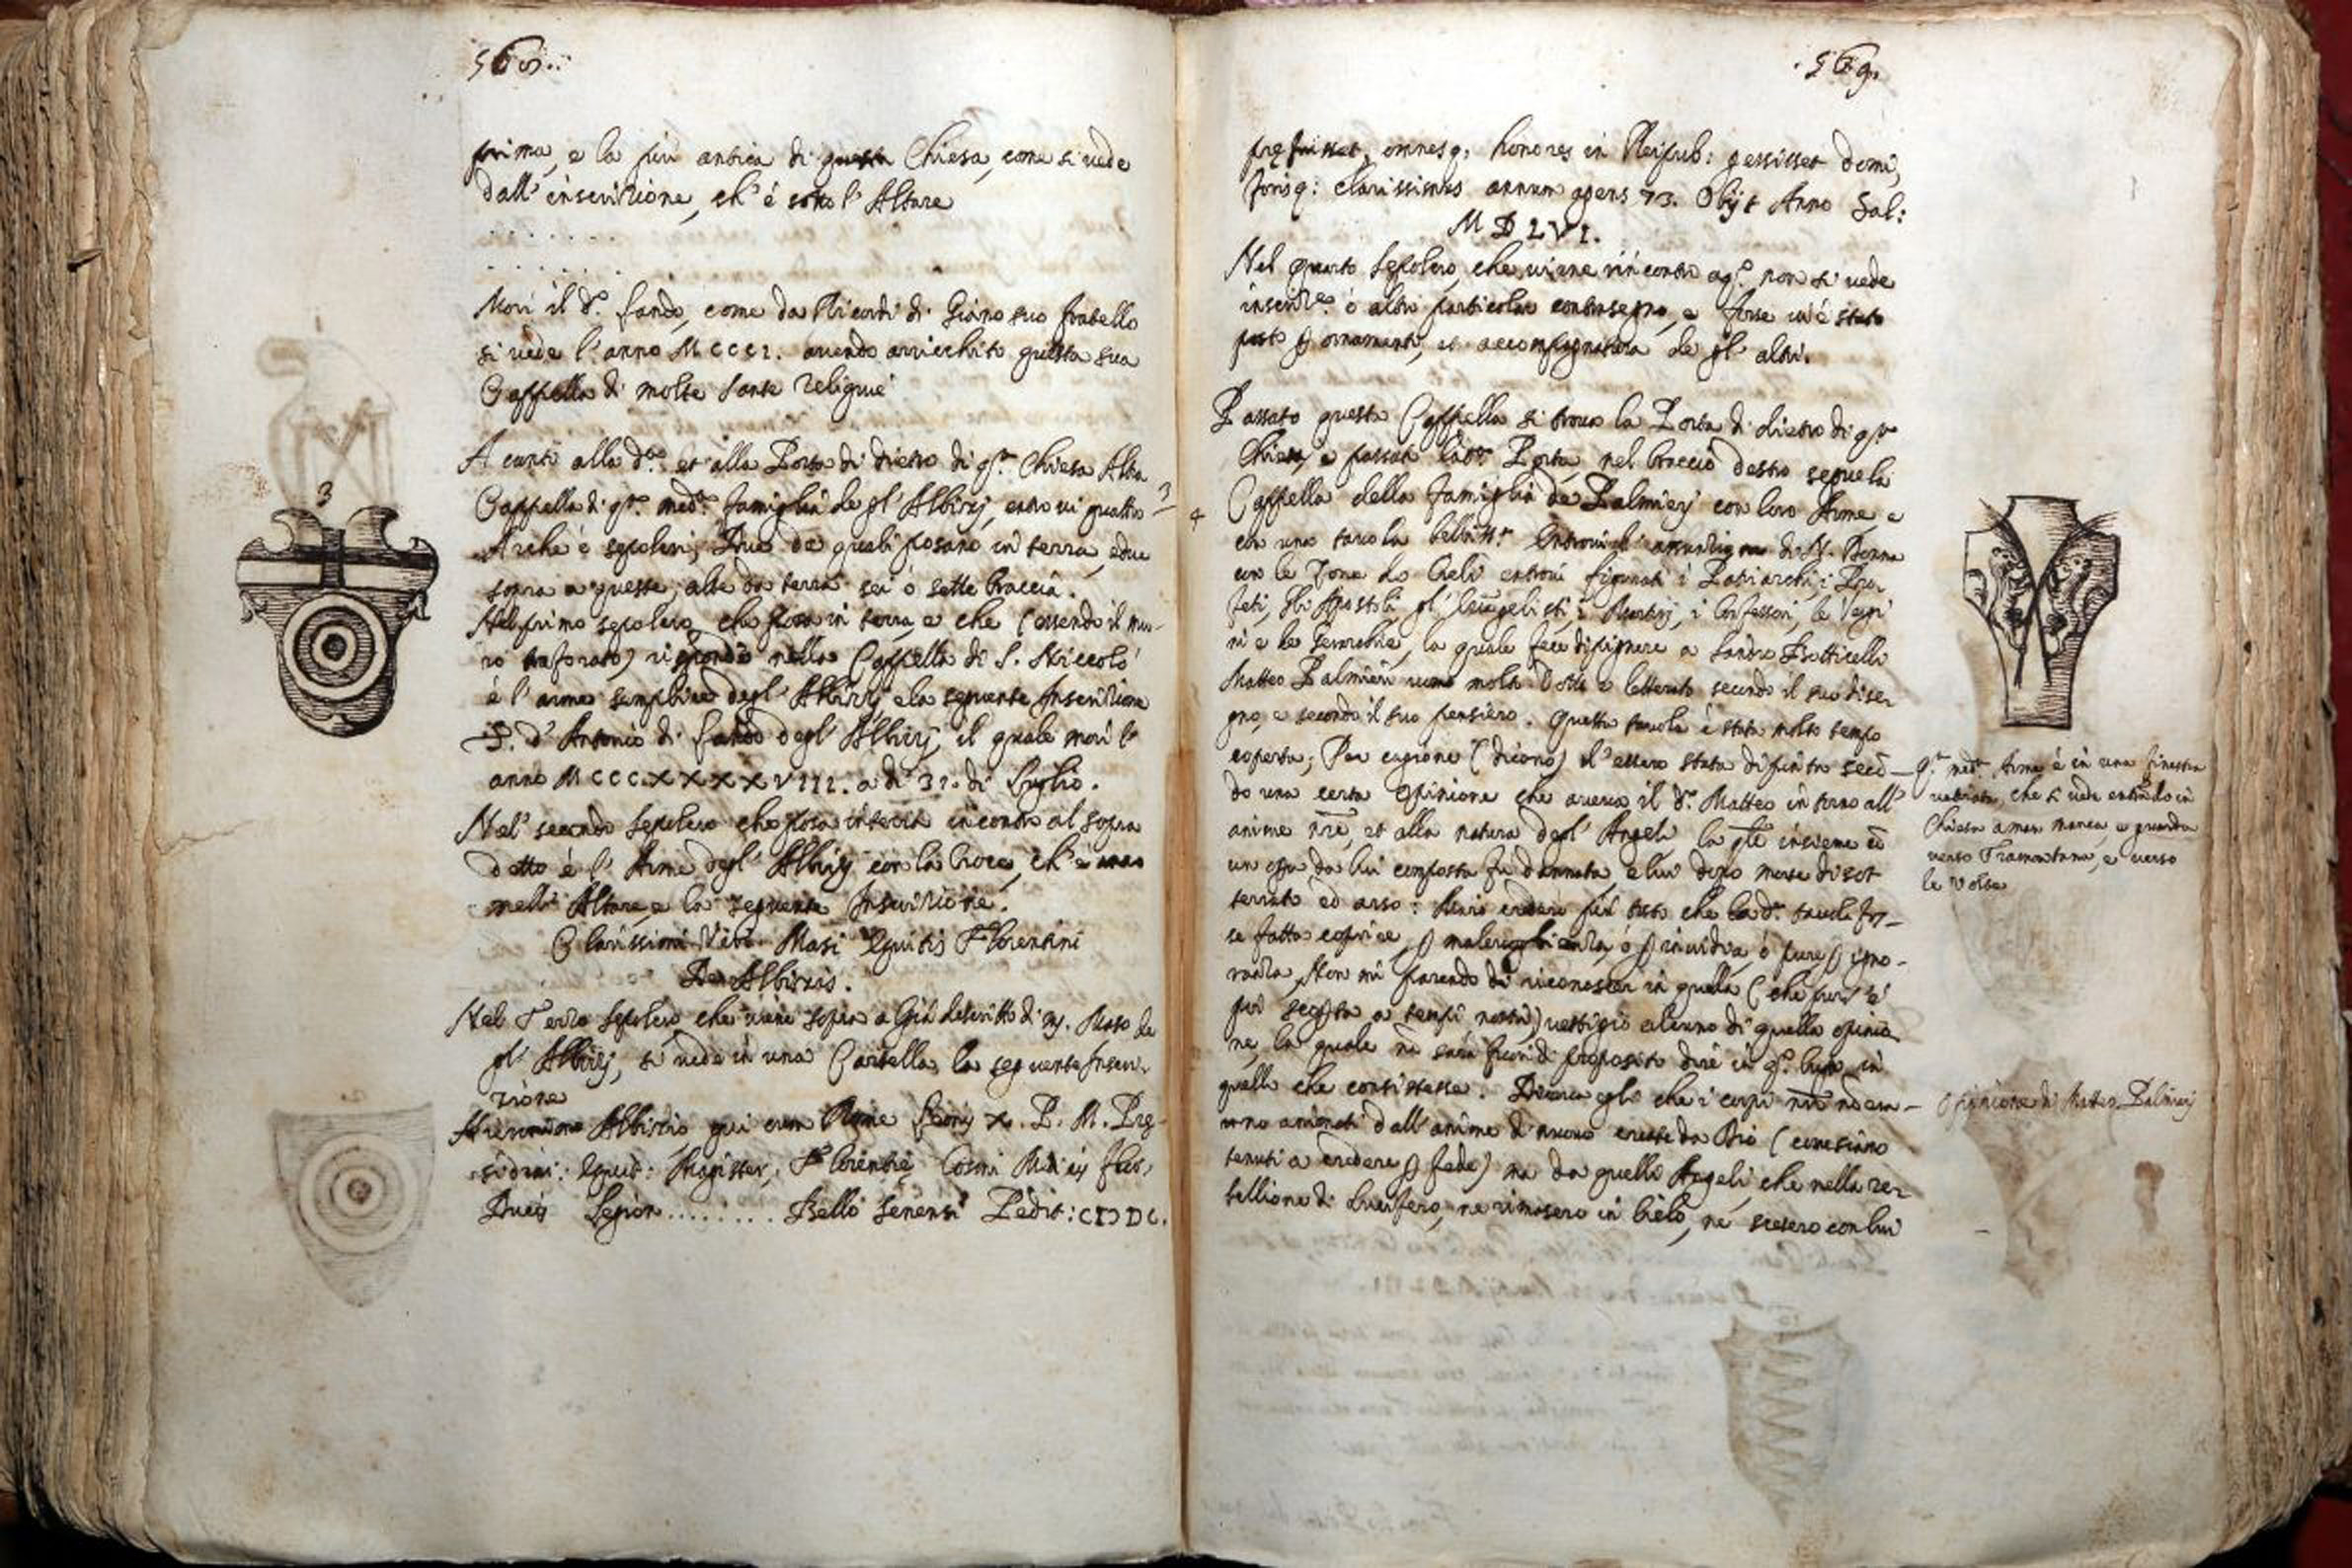 568.
prima, e la più antica di questa Chiesa, come si vede
dall' inscrizione, ch' è sotto l' Altare
. . . . . . .
. . . . . . .
Morì il d.º Lando, come da Ricordi di Giano suo fratello
si vede l' anno MCCCI. avendo arricchito questa sua
Cappella di molte sante reliquie
Acanto alla d.ª et alla Porta di dietro di q.ª Chiesa Altra
3
Cappella di q.ª med.ª famiglia de gl' Albizzj, entrovi quattro
3
Arche è sepolcri; Due de quali posano in terra, e due
sopra a queste, alte da terra sei ò sette braccia.
Nel primo sepolcro, che posa in terra, e che (essendo il mu-
ro traforato) risponde nella Cappella di S. Niccolò
è l' arme semplice degl' Albizzj e la seguente Inscrizione
S. d' Antonio di Lando degl' Albizzj, il quale morì l'
anno MCCCXXXXVIII. a dì 31. di Luglio.
Nel secondo Sepolcro che posa in terra incontro al sopra
detto è l' Arme degl' Albizzj con la Croce, ch' è
nell' Altare, e la seguente Inscrizione.
Clarissimi Viri Masi Equitis Florentini
De Albizis.
Nel Terzo Sepolcro che viene sopra a Già descritto di M. Maso de
gl' Albizzj, si vede in una Cartella la seguente Inscri-
zione
Albizio qui cum Rome Leonis X. P. M. Pre-
sidiar: Equit: Magister, Florentie Cosmi Medices Flor,
Ducis Legion ........ Bello Senensi Pedit: CIↃDC.
.569.
prefuisset, omnesq, honores in Reipub: gessisset domi,
forisq: clarissimus annum agens 73. Obijt Anno Sal:
MDLVI.
Nel quarto Sepolcro, che viene rincontro a q.º non si vede
inscriz.e ò altro particolar contrasegno, e forse vi è stato
posto p ornamento, et accompagnatura de gl' altri.
Passato questa Cappella si trova la Porta di dietro di q.ª
Chiesa, e passata la d.ª Porta, nel braccio destro segue la
4
Cappella della famiglia de Palmierj con loro Arme, e
con una tavola belliss.ª Entrovi l' assunzione di N. Donna
con le Zone de Cieli entrovi figurati i Patriarchi, i Pro-
feti, Gli Apostoli, gl' Evangelisti, i Martirj, i Confessori, le Vergi-
ni e le Gerarchie, la quale fece dipignere a Sandro Botticelli
Matteo Palmieri uomo molto Dotto e letterato secondo il suo dise-
gno, e secondo il suo pensiero. Questa tavola è stata molto tempo
coperta; Per cagione (dicono) d' essere stata dipinta secō-
do una certa opinione che aveva il d.º Matteo intorno all'
anime nr̄e, et alla natura degl' Angeli, la qle insieme cō
un opra da lui composta fu dannata, e lui dopo morte disot-
terrato ed arso: Ma io crederei più tosto che la d.ª tavola fus-
se fatta coprire, p malevoghienza, ò p invidia, ò pure p igno-
ranza, Non mi parendo di riconoscer in quella (che pur s' è
poi scoperta a tempi nostri) vestigio alcuno di quella opinio-
ne, la quale nō sarà fuori di proposito dire in q.º luogo in
quello che consistesse. Diceva egli che i corpi nr̄i nō era-
uno animati dall' anime di nuovo create da Dio (come siamo
tenuti a credere p fede) ma da quelli Angeli, che nella re-
bellione di Lucifero, ne rimasero in Cielo, ne scesero con lui
q.ª med.ª Arme è in una finestra
vetriata, che si vede entrādo in
Chiesa a man manca, e guarda
verso Tramontana, e verso
le Volte
Opinione di Matteo Palmierj